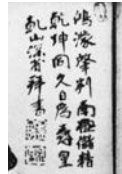 鴻濛肇判南極儲精
乾坤同久日為壽星
乾山深省拜書